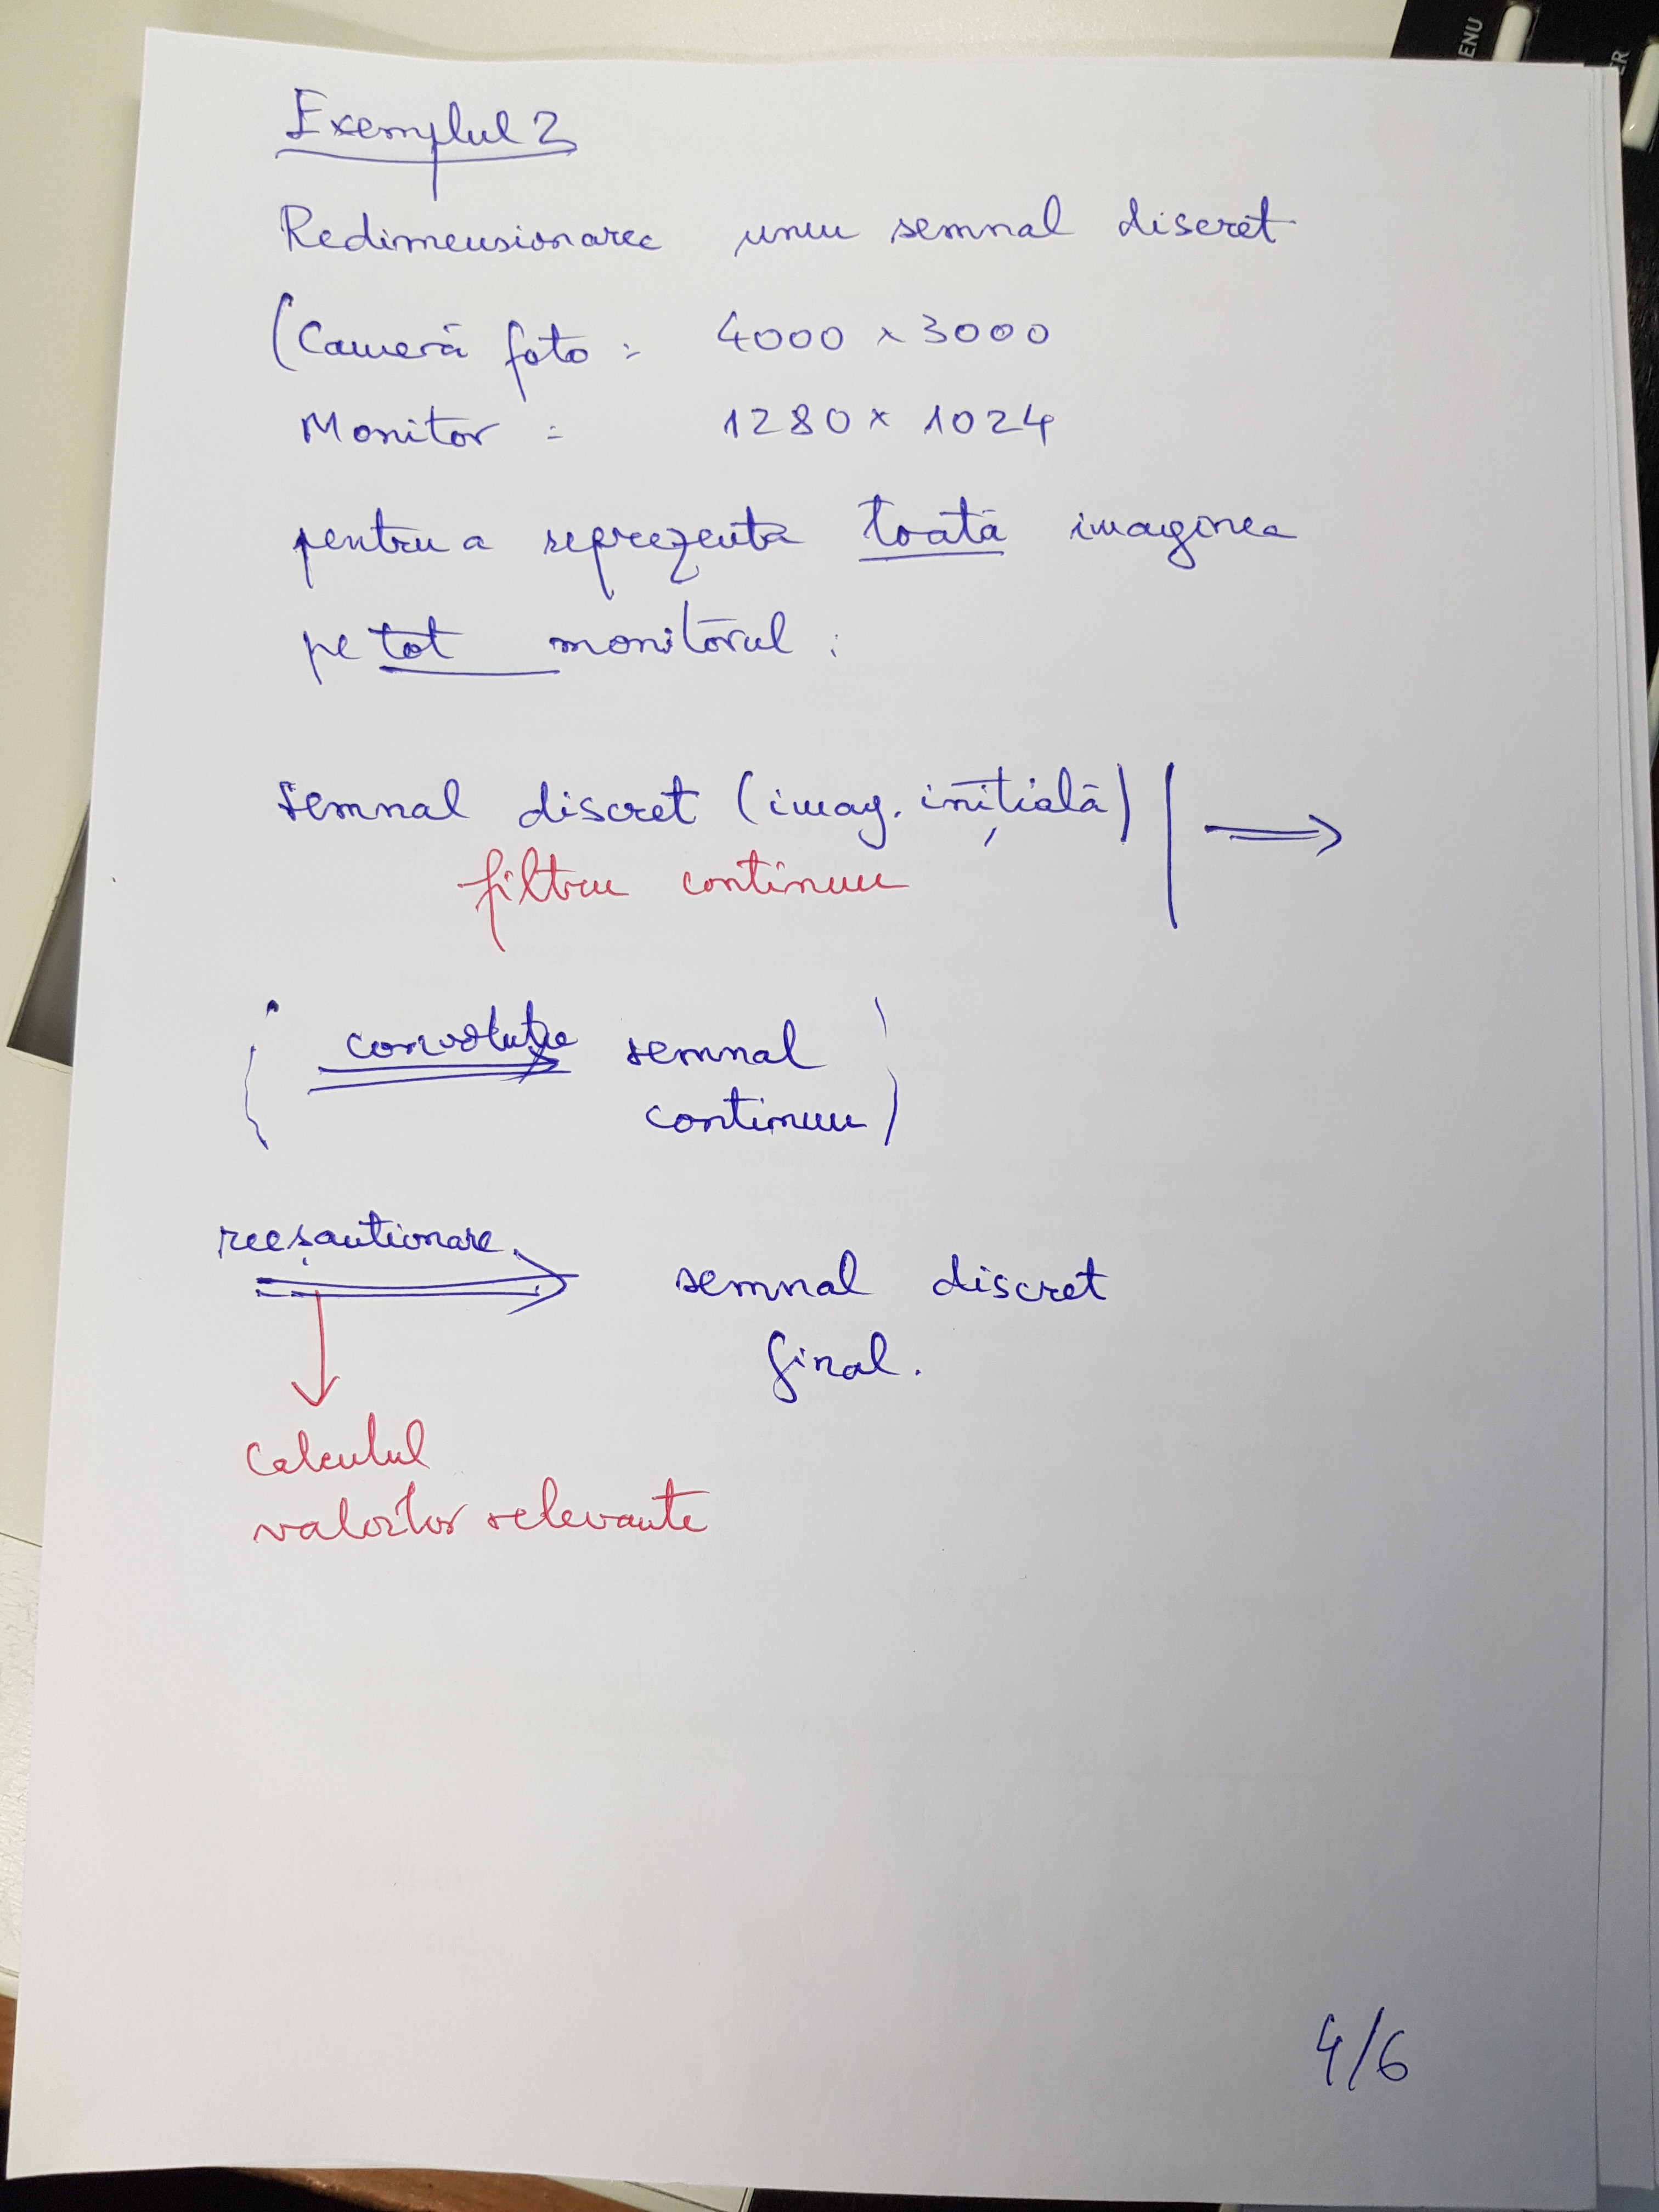 ENU
ER
Exemplul 2
Redimensionarea unui semnal discret
(Cameră foto : 4000 x 3000
Monitor : 1280 x 1024
pentru a reprezenta toată imaginea
pe tot monitorul :
Semnal discret (imag. inițială) | ⟹
filtru continuu
( convoluție ⟹ semnal
continuu )
reeșantionare ⟹ semnal discret
final.
↓
Calculul
valorilor relevante
4/6